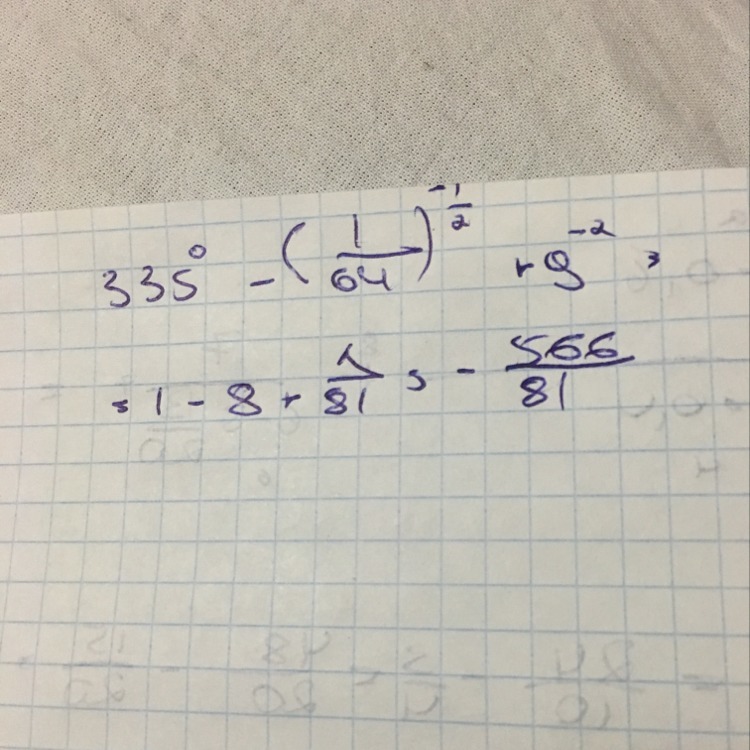 335⁰ - (1/64)^(-1/2) + 9^(-2) =
= 1 - 8 + 1/81 = - 566/81